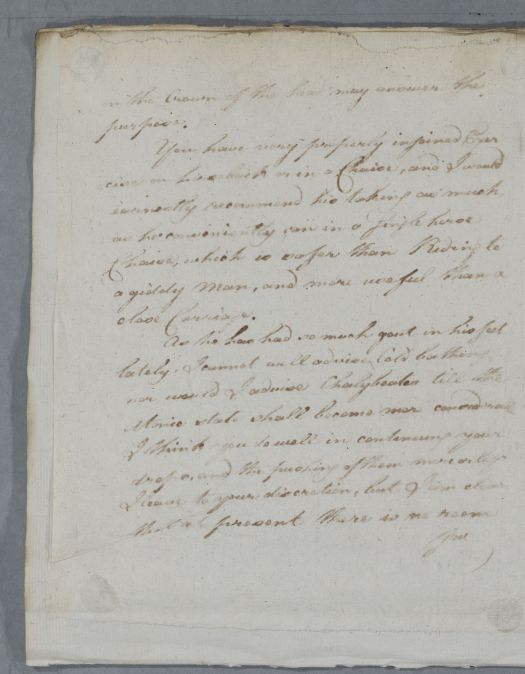 on the Crown of the head may answer the
purpose.
You have very properly injoined Exer
cise on horseback or in a Chaise, and I would
earnestly recommend his taking as much
as he conveniently can in a single horse
Chaise, which is safer than Riding to
a giddy Man, and more useful than a
close Carriage.
As he has had so much gout in his feet
lately, I cannot well advise Cold bathing
nor would I advise Chalybeates till the
state shall become more
I think you do well in continuing your
drops, and the pushing of them more or less
I leave to your discretion, but I am clear
that at present there is no room
for